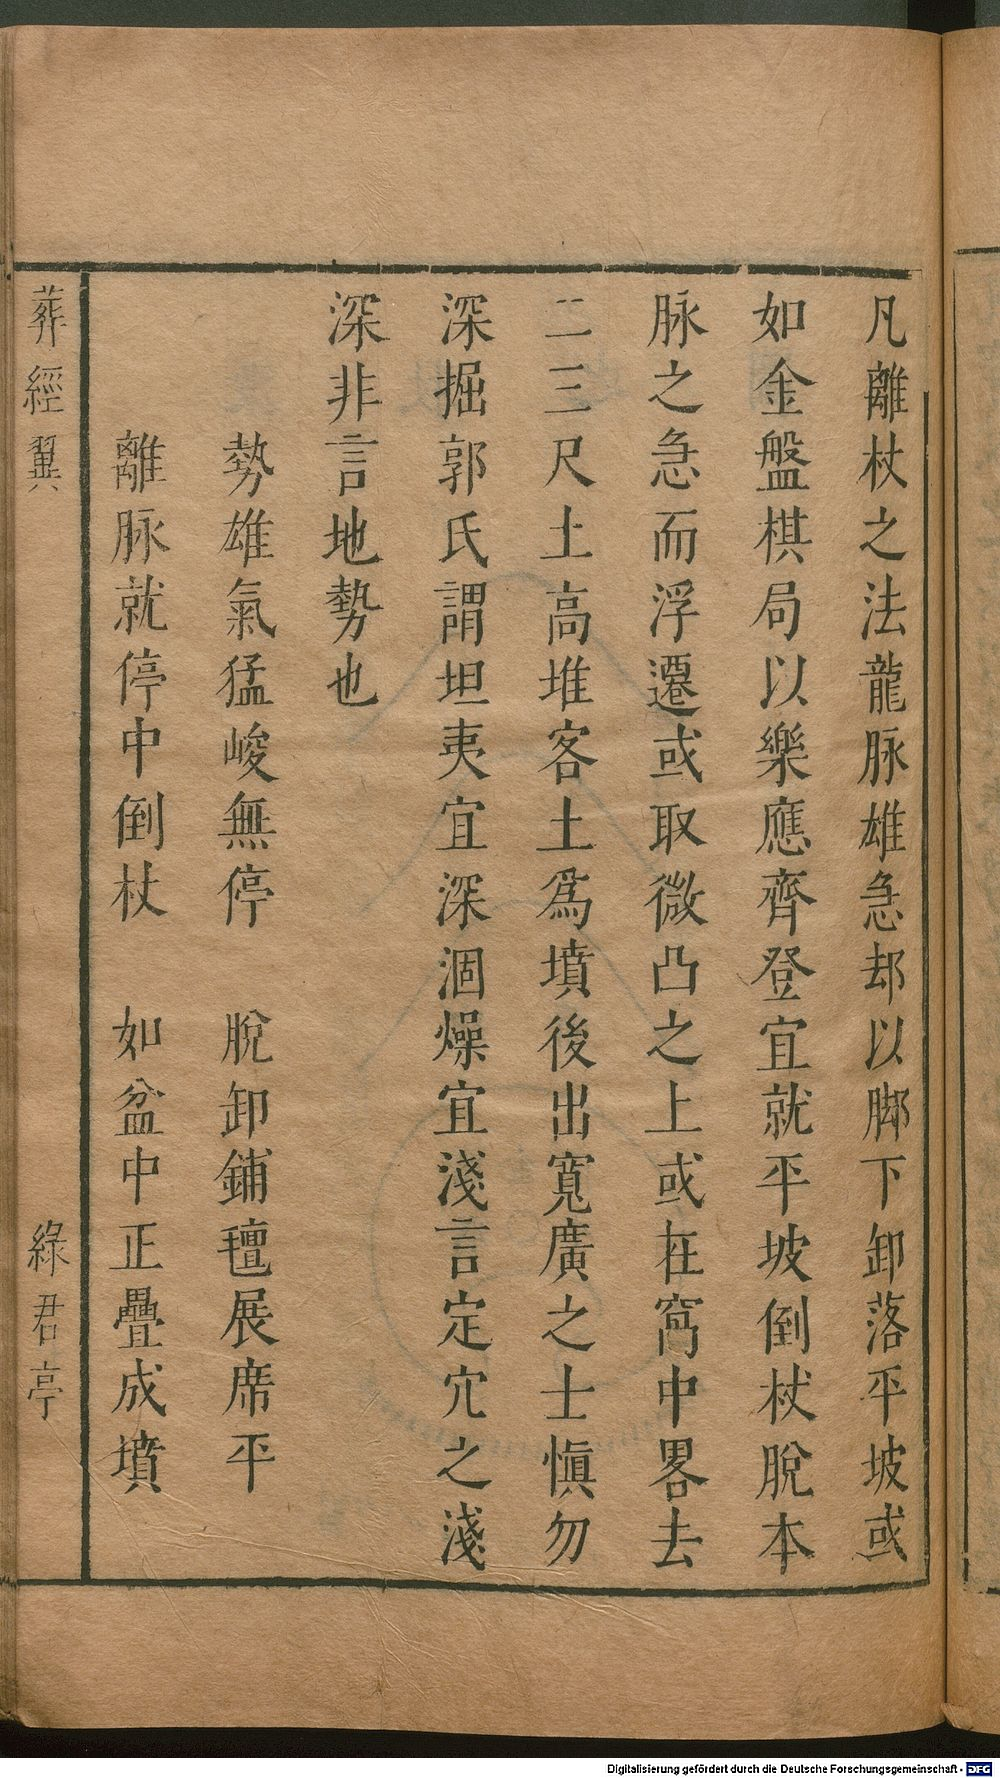 凡離杖之法龍脉雄急却以脚下卸落平坡或
如金盤棋局以樂應齊登宜就平坡倒杖脫本
脉之急而浮遷或取微凸之上或在窩中畧去
二三尺土高堆客土爲墳後出寬廣之士愼勿
深掘郭氏謂坦夷宜深涸燥宜淺言定穴之淺
深非言地勢也
勢雄氣猛峻無停　脫卸鋪氊展席平
離脉就停中倒杖　如盆中正疊成墳
葬經翼　綠君亭
Digitalisierung gefördert durch die Deutsche Forschungsgemeinschaft - DFG